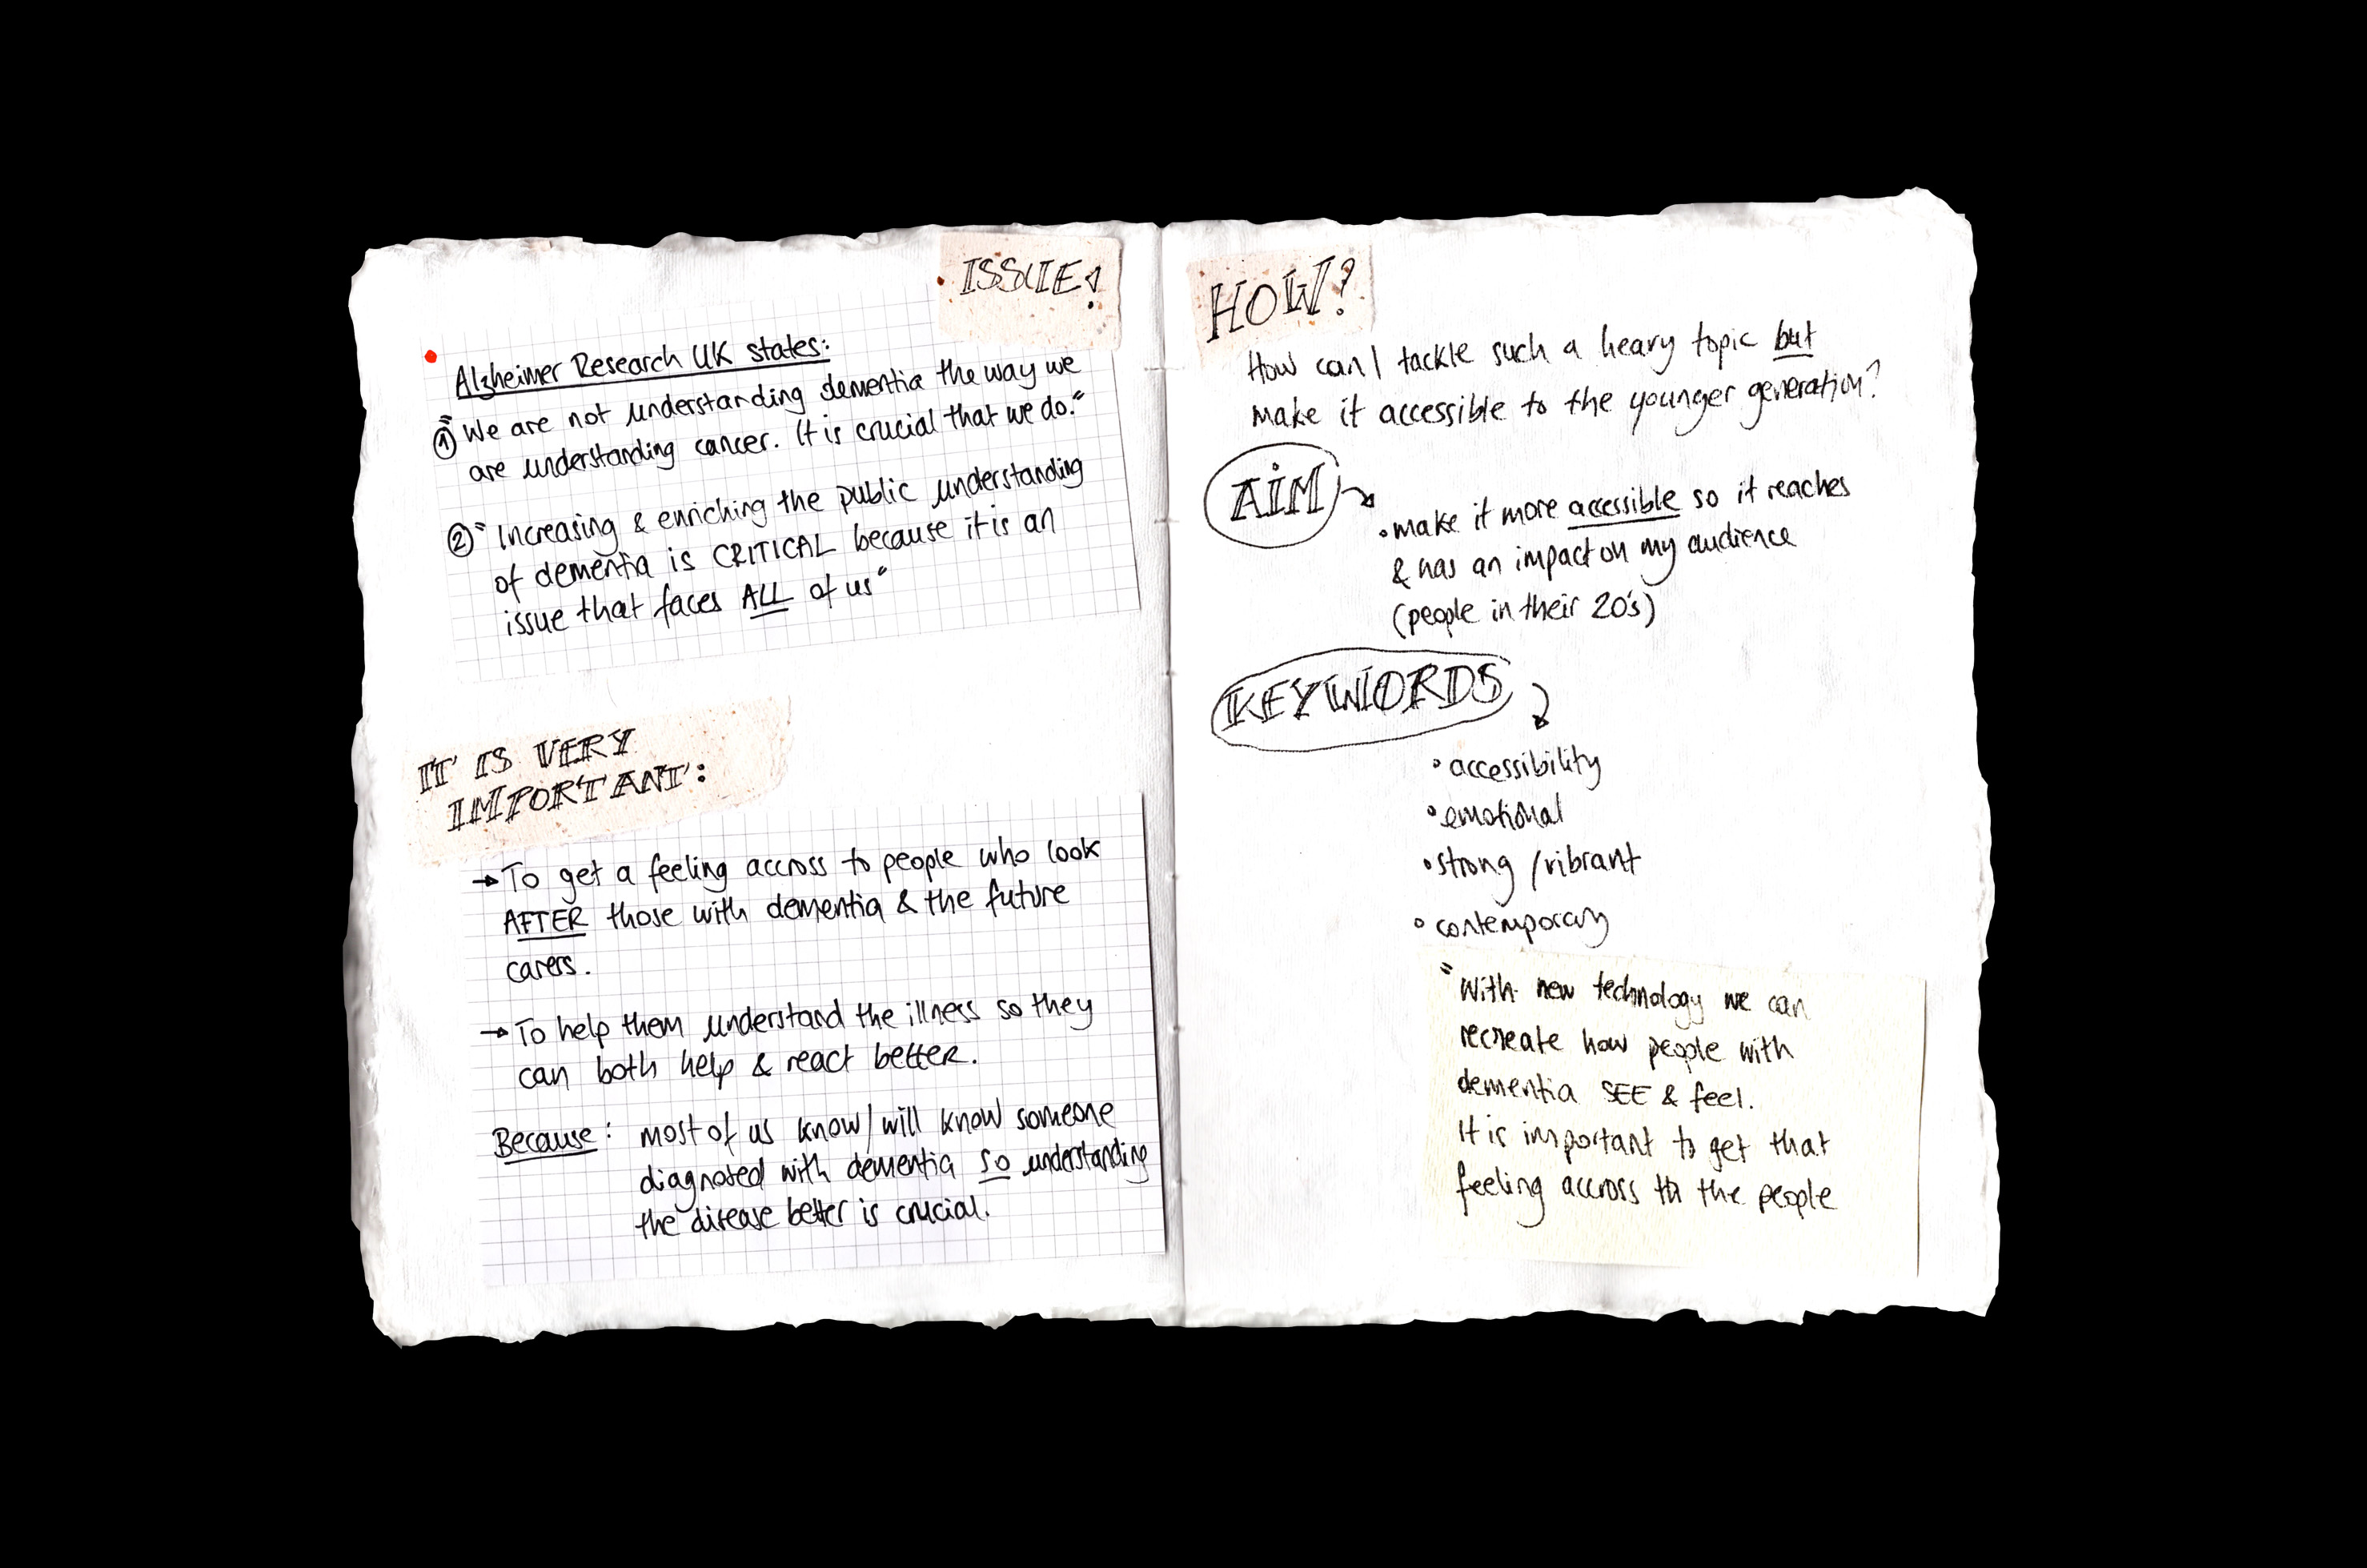 ISSUE!
Alzheimer Research UK states:
① "We are not understanding dementia the way we
are understanding cancer. It is crucial that we do."
② "Increasing & enriching the public understanding
of dementia is CRITICAL because it is an
issue that faces ALL of us"
IT IS VERY
IMPORTANT:
→ To get a feeling accross to people who look
AFTER those with dementia & the future
carers.
→ To help them understand the illness so they
can both help & react better.
Because: most of us know/will know someone
diagnosed with dementia so understanding
the disease better is crucial.
HOW?
How can I tackle such a heavy topic but
make it accessible to the younger generation?
AIM
• make it more accessible so it reaches
& has an impact on my audience
(people in their 20's)
KEYWORDS
• accessibility
• emotional
• strong /vibrant
• contemporary
"With new technology we can
recreate how people with
dementia SEE & feel.
It is important to get that
feeling accross to the people